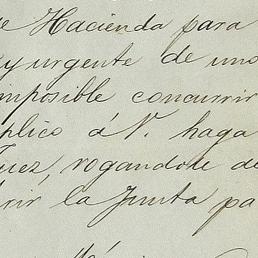 e Hacienda para
y urgente de uno
imposible concurrir
plico á V. haga
uez, rogandole de
rir la Junta pa